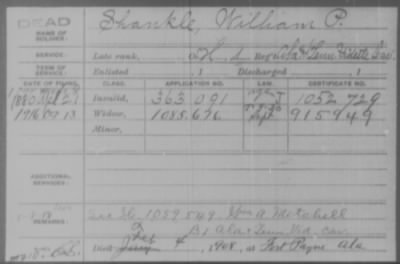 DEAD
NAME OF SOLDIER: Shankle, William P.
SERVICE: Late rank, Co. H, 1 Reg't Ala & Tenn Vidette Cav.
TERM OF SERVICE: Enlisted , 1 Discharged , 1
DATE OF FILING. CLASS. APPLICATION NO. LAW. CERTIFICATE NO.
1880 Invalid, 363 091 1052 729
1916 13 Widow, 1085,676 915949
Minor,
ADDITIONAL SERVICES:
REMARKS: See 1089549 Wm A Mitchell
B 1 Ala & Tenn Vid. Cav
Feb
Died 4, 1908, at Fort Payne Ala